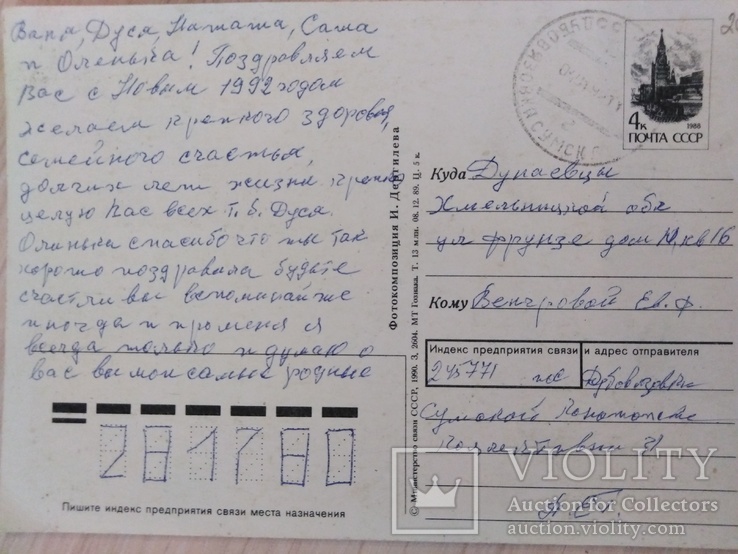 Ваня, Дуся, Наташа, Саша
и Оленька! Поздравляем
Вас с Новым 1992 годом
желаем крепкого здоровья,
семейного счастья,
долгих лет жизни крепко
целую Вас всех т. б. Дуся.
Олинька спасибо что ты так
хорошо поздравила будьте
счастливы вспоминайте
иногда и про меня я
всегда только и думаю о
вас вы мои самые родные
281780
Пишите индекс предприятия связи места назначения
© Министерство связи СССР, 1990. З. 2604. МТ Гознака. Т. 13 млн. 08. 12. 89. Ц. 5 к.
Фотокомпозиция И. Дергилева
4к
1988
ПОЧТА СССР
Куда Дунаевцы
Хмельницкой обл
ул Фрунзе дом кв 16
Кому Ев. Ф.
Индекс предприятия связи и адрес отправителя
245771
Сумской
31
VIOLITY
Auction for Collectors
auction.violity.com